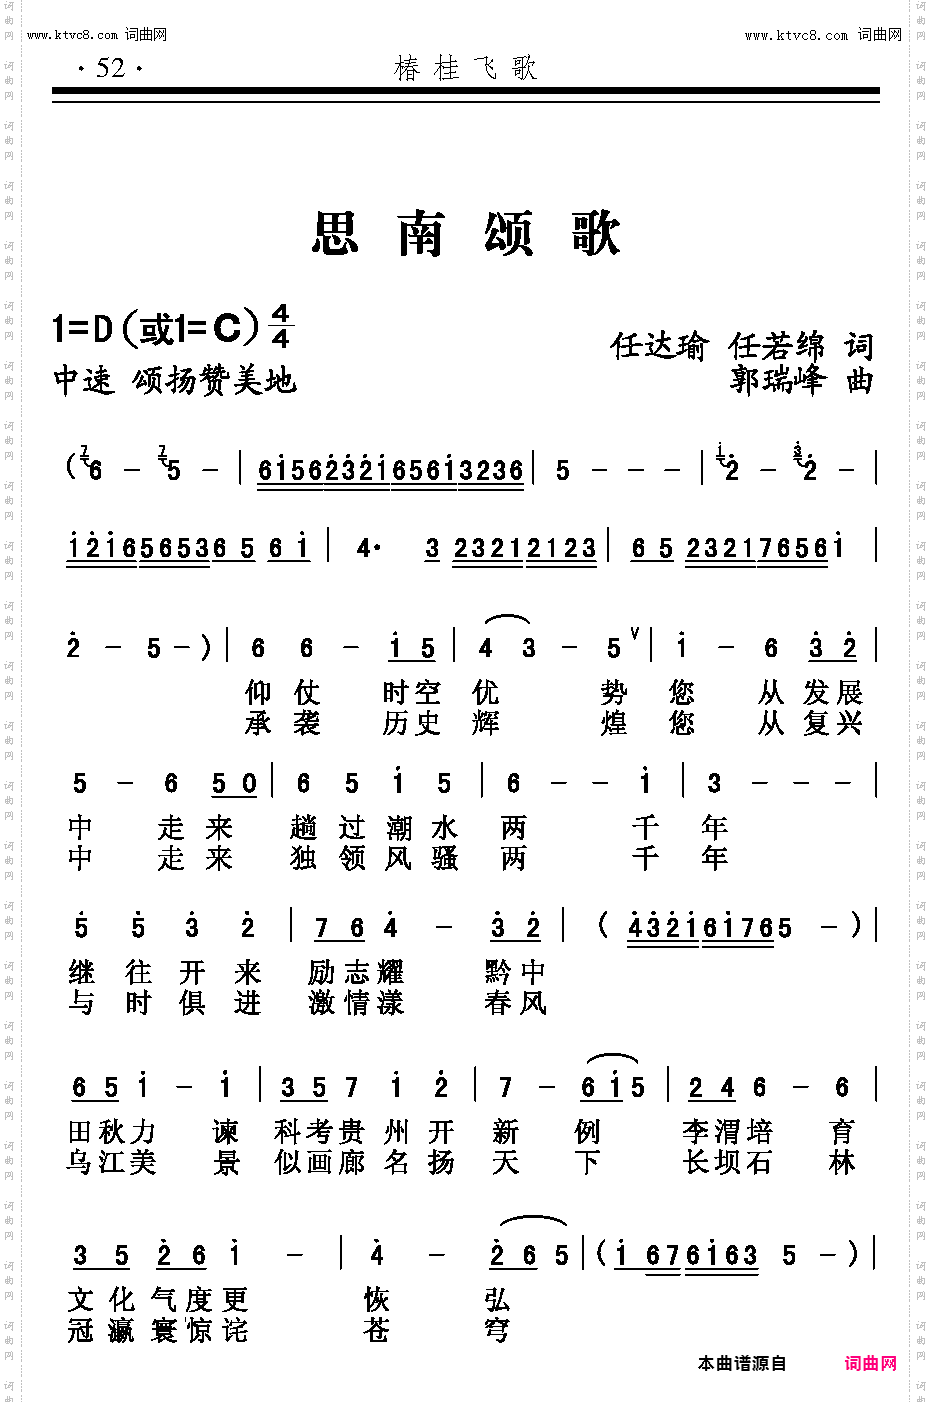 www.ktvc8.com 词曲网 www.ktvc8.com 词曲网
·52· 椿桂飞歌
思南颂歌
1=D(或1=C) 4/4
任达瑜 任若绵 词
中速 颂扬赞美地
郭瑞峰 曲
( 6 - 5 - | 6i56232i656i3236 | 5 - - - | 2 - 2 - |
i2i6565365 6i | 4· 3 23212123 | 65 23217656i |
2 - 5 - ) | 6 6 - i5 | 4 3 - 5 V | i - 6 32 |
仰仗 时空优 势 您 从发展
承袭 历史辉 煌 您 从复兴
5 - 6 50 | 6 5 i 5 | 6 - - i | 3 - - - |
中 走来 趟过潮水两 千 年
中 走来 独领风骚两 千 年
5 5 3 2 | 76 4 - 32 | ( 432i6i765 - ) |
继往开来励志耀 黔中
与时俱进激情漾 春风
65i - i | 357 i 2 | 7 - 6i5 | 246 - 6 |
田秋力 谏 科考贵州开新 例 李渭培 育
乌江美 景 似画廊名扬天 下 长坝石 林
35 26 i - | 4 - 265 | ( i 676i63 5 - ) |
文化气度更 恢 弘
冠瀛寰惊诧 苍 穹
本曲谱源自 词曲网